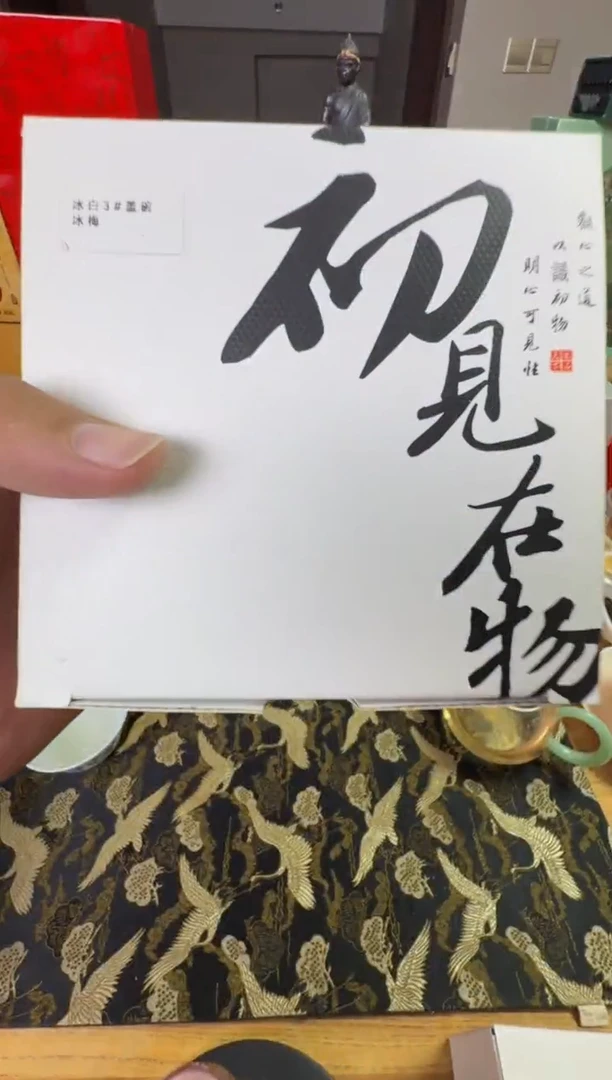 冰白3#盖碗
冰梅
初見在物
觀心之道
以識初物
明心可見性